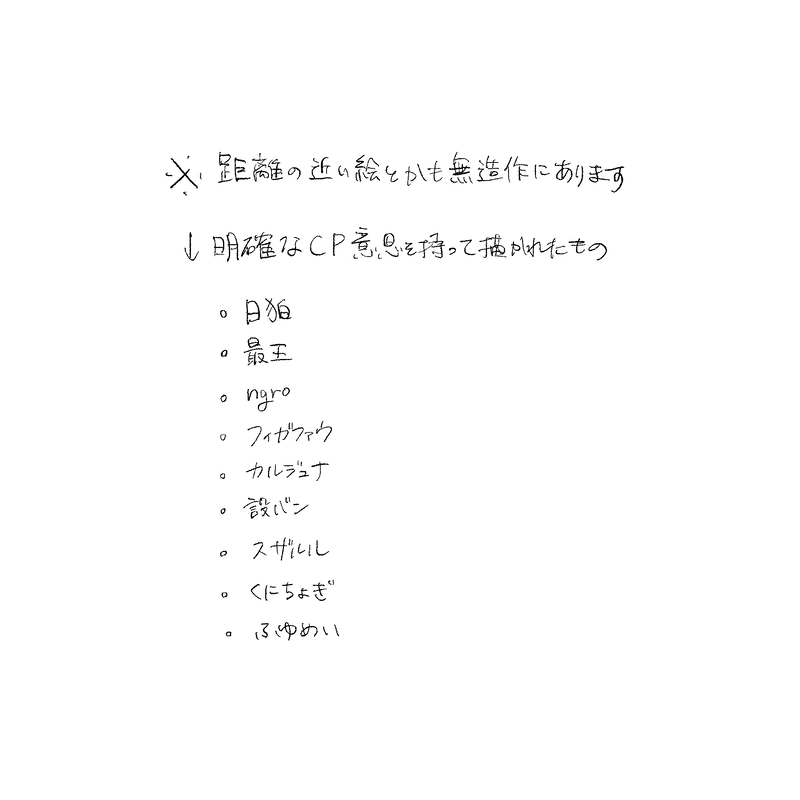 ※距離の近い絵とかも無造作にあります
↓明確なCP意思を持って描かれたもの
○ 日狛
○ 最王
○ ngro
○ フィガファウ
○ カルジュナ
○ 設バン
○ スザルル
○ くにちょぎ
○ ふゆめい